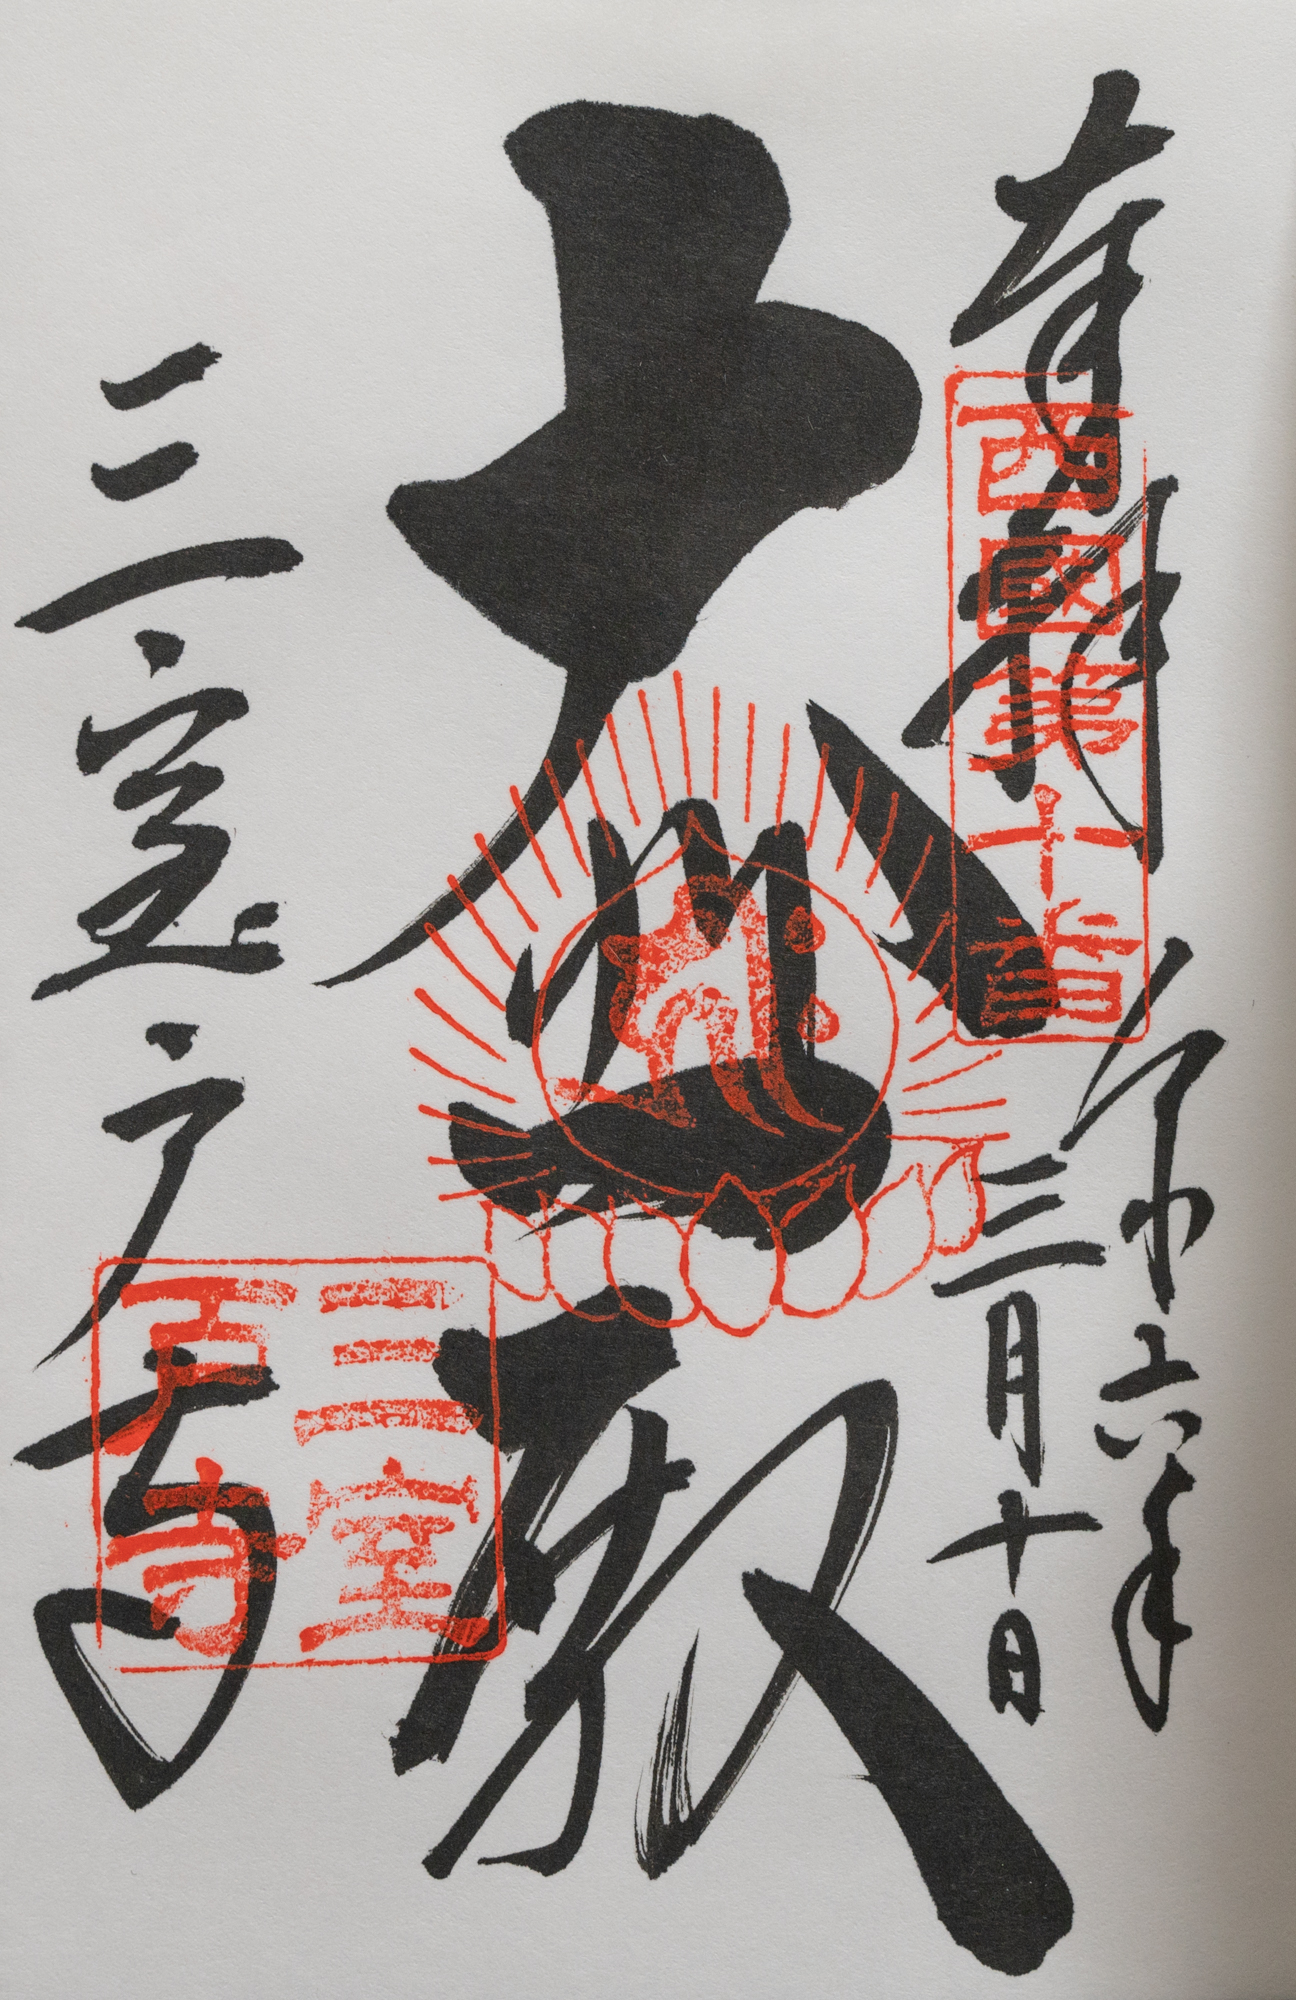 奉拝
西國第十番
令和六年
三月十日
大悲殿
三室戸寺
三室
戸寺